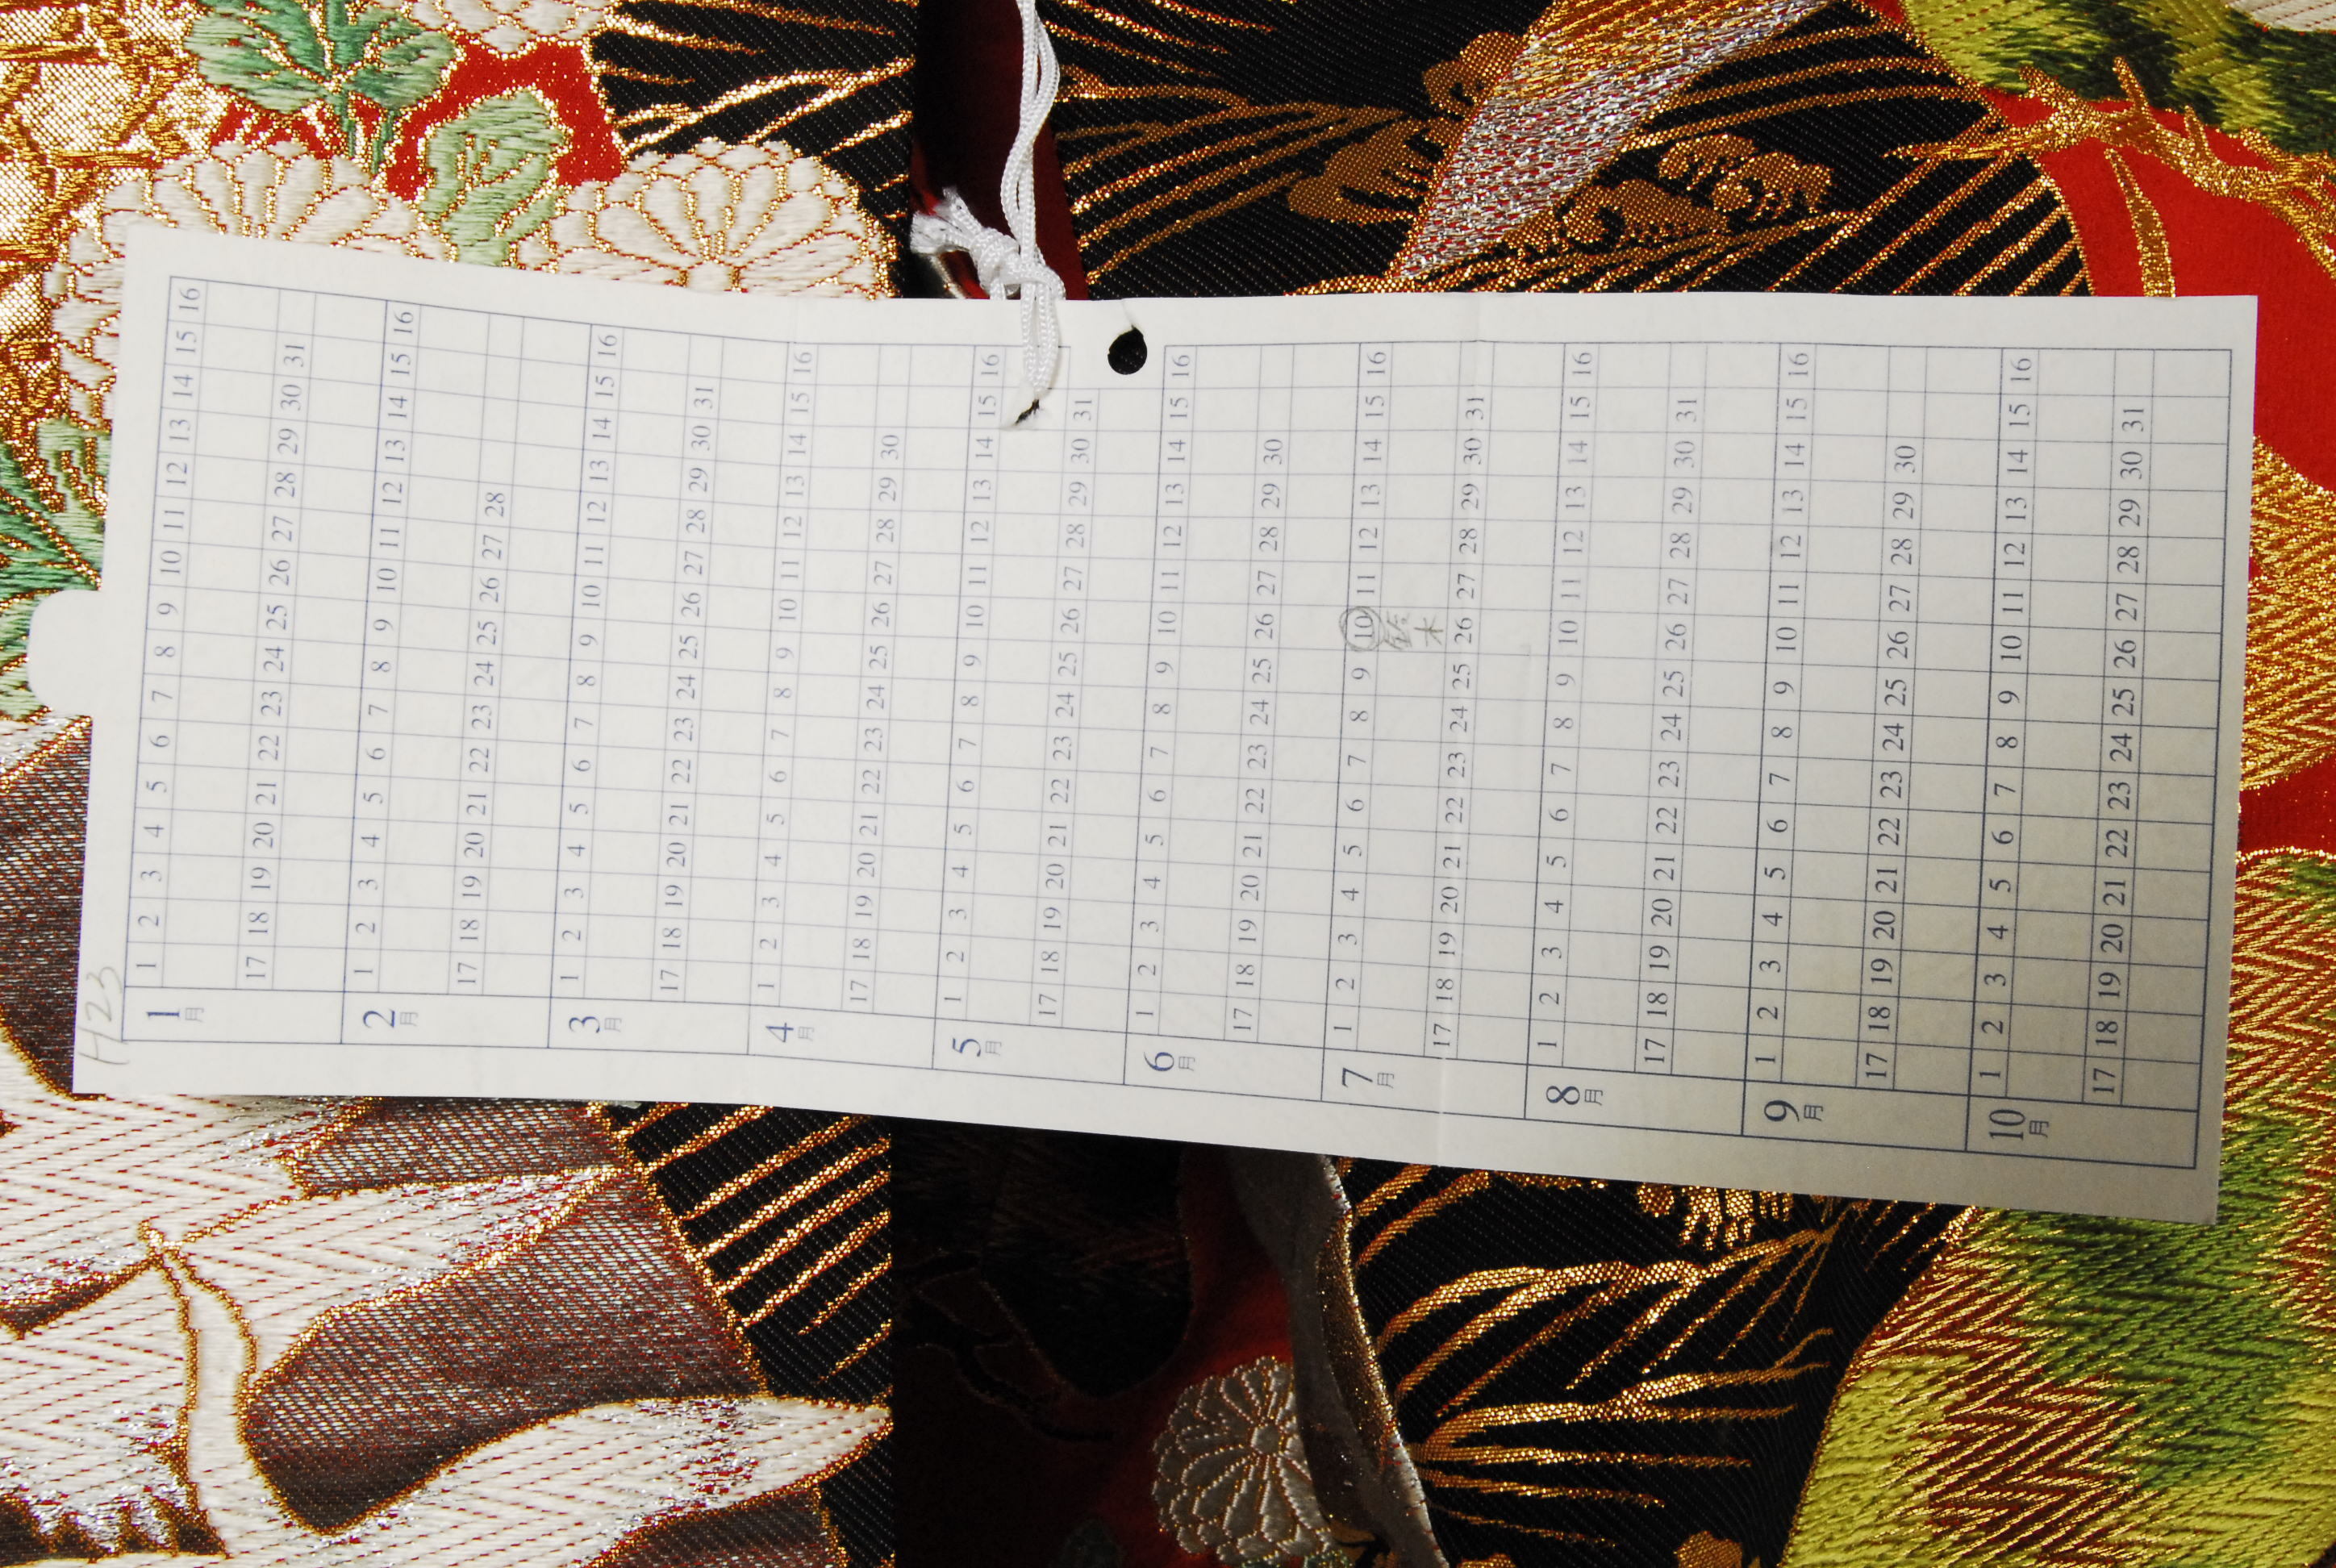 H23
1月
1 2 3 4 5 6 7 8 9 10 11 12 13 14 15 16
17 18 19 20 21 22 23 24 25 26 27 28 29 30 31
2月
1 2 3 4 5 6 7 8 9 10 11 12 13 14 15 16
17 18 19 20 21 22 23 24 25 26 27 28
3月
1 2 3 4 5 6 7 8 9 10 11 12 13 14 15 16
17 18 19 20 21 22 23 24 25 26 27 28 29 30 31
4月
1 2 3 4 5 6 7 8 9 10 11 12 13 14 15 16
17 18 19 20 21 22 23 24 25 26 27 28 29 30
5月
1 2 3 4 5 6 7 8 9 10 11 12 13 14 15 16
17 18 19 20 21 22 23 24 25 26 27 28 29 30 31
6月
1 2 3 4 5 6 7 8 9 10 11 12 13 14 15 16
17 18 19 20 21 22 23 24 25 26 27 28 29 30
7月
1 2 3 4 5 6 7 8 9 10 11 12 13 14 15 16
鈴木
17 18 19 20 21 22 23 24 25 26 27 28 29 30 31
8月
1 2 3 4 5 6 7 8 9 10 11 12 13 14 15 16
17 18 19 20 21 22 23 24 25 26 27 28 29 30 31
9月
1 2 3 4 5 6 7 8 9 10 11 12 13 14 15 16
17 18 19 20 21 22 23 24 25 26 27 28 29 30
10月
1 2 3 4 5 6 7 8 9 10 11 12 13 14 15 16
17 18 19 20 21 22 23 24 25 26 27 28 29 30 31